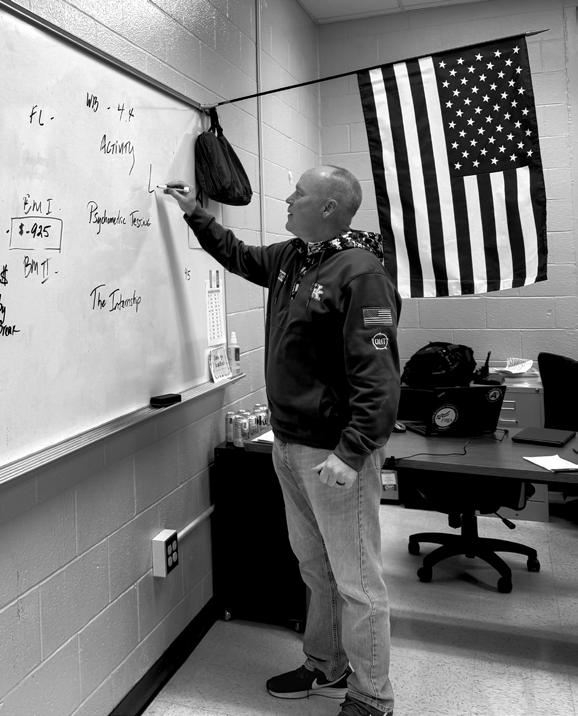 FL -
WB - 4x
Activity
BM I
$-925
Psychometric Testing
BM II -
$
The Internship
By
45